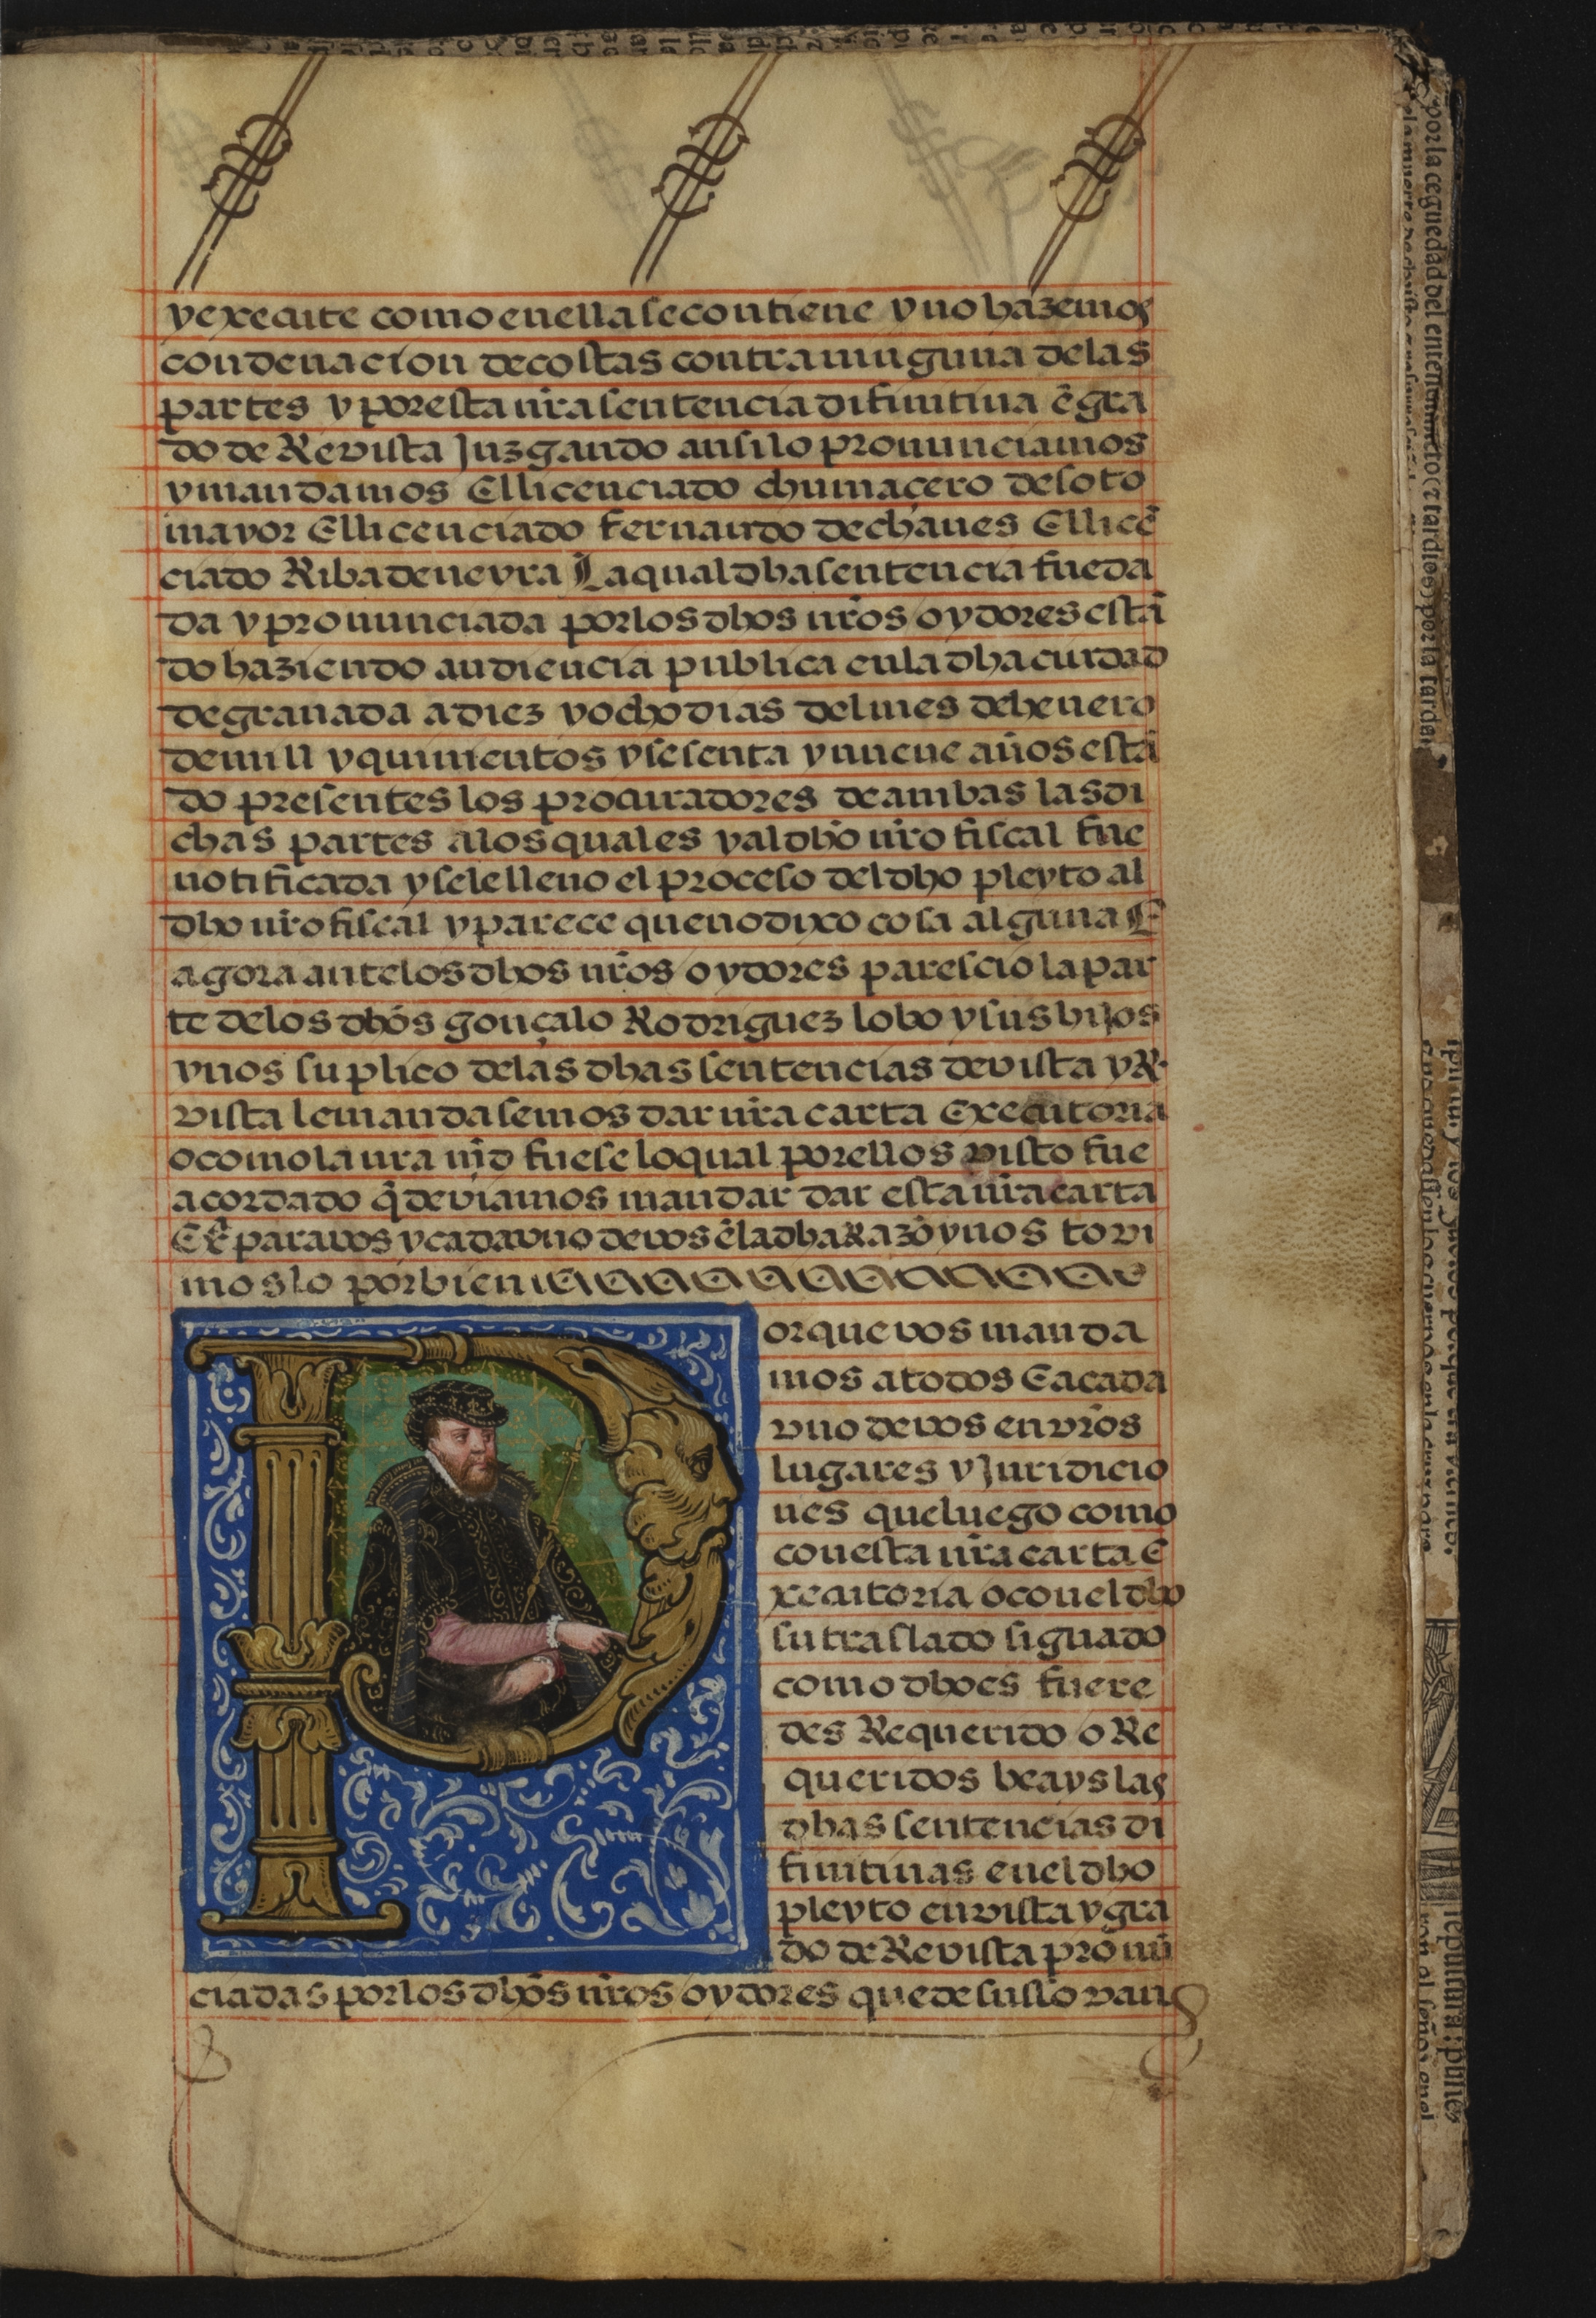 yexecute como enella se contiene y no hazemos
condenacion de costas contra ninguna delas
partes y por esta nr̃a sentencia difinitiua ẽ gra
do de Revista Juzgando ansi lo pronunciamos
y mandamos El licenciado chumaçero de soto
mayor El licenciado fernando de chaues El licẽ
ciado Ribadeneyra La qual dha sentencia fue da
da y pronunciada por los dhos nr̃os oydores estã
do haziendo audiencia publica en la dha ciudad
de granada a diez y ocho dias del mes de henero
de mill y quinientos y sesenta y nueue años estã
do presentes los procuradores de ambas las di
chas partes alos quales y al dho nr̃o fiscal fue
notificada y se le lleuo el proceso del dho pleyto al
dho nr̃o fiscal y parece que no dixo cosa alguna E
agora ante los dhos nr̃os oydores parescio la par
te delos dhos gonçalo Rodriguez lobo y sus hijos
y nos suplico delas dhas sentencias de vista y Re
vista le mandasemos dar nr̃a carta Executoria
o como la nr̃a md fuese lo qual por ellos visto fue
acordado q̃ deviamos mandar dar esta nr̃a carta
para vos y cada vno de vos ẽ la dha Razõ y nos tovi
moslo por bien
Porque vos manda
mos a todos E a cada
vno de vos en vr̃os
lugares y Juridicio
nes que luego como
con esta nr̃a carta E
xecutoria o con el dho
su traslado signado
como dho es fuere
des Requerido o Re
queridos beays las
dhas sentencias di
finitiuas en el dho
pleyto en vista y gra
do de Revista pronũ
ciadas por los dhos nr̃os oydores que de suso van
por la ceguedad del entendimiẽto (r tardios) por la tardã